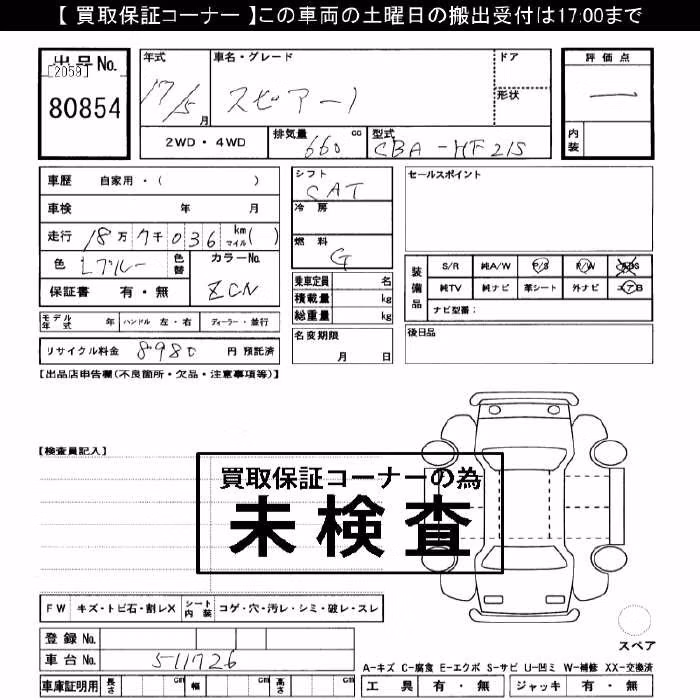 【 買取保証コーナー 】この車両の土曜日の搬出受付は17:00まで
出品No.
[2059]
80854
年式
17/5
月
車名・グレード
スピアーノ
ドア
形状
評価点
一
内装
2WD・4WD
排気量
660
cc
型式
CBA-HF21S
車歴 自家用・( )
車検 年 月
走行 18万7千036 km マイル( )
色 Lブルー 色替 カラーNo. ZCN
保証書 有・無
モデル年式 年 ハンドル 左・右 ディーラー・並行
リサイクル料金 8980 円 預託済
シフト
CAT
冷房
燃料
G
乗車定員 名
積載量 kg
総重量 kg
名変期限
月 日
セールスポイント
装備品
S/R 純A/W P/S P/W
純TV 純ナビ 革シート 外ナビ エアB
ナビ型番:
後日品
【出品店申告欄(不良箇所・欠品・注意事項等)】
【検査員記入】
買取保証コーナーの為
未検査
FW キズ・トビ石・割レX シート内装 コゲ・穴・汚レ・シミ・破レ・スレ
登録No.
車台No. 511726
車庫証明用 長さ cm 幅 cm 高さ cm
スペア
A-キズ C-腐食 E-エクボ S-サビ U-凹ミ W-補修 XX-交換済
工具 有・無 ジャッキ 有・無